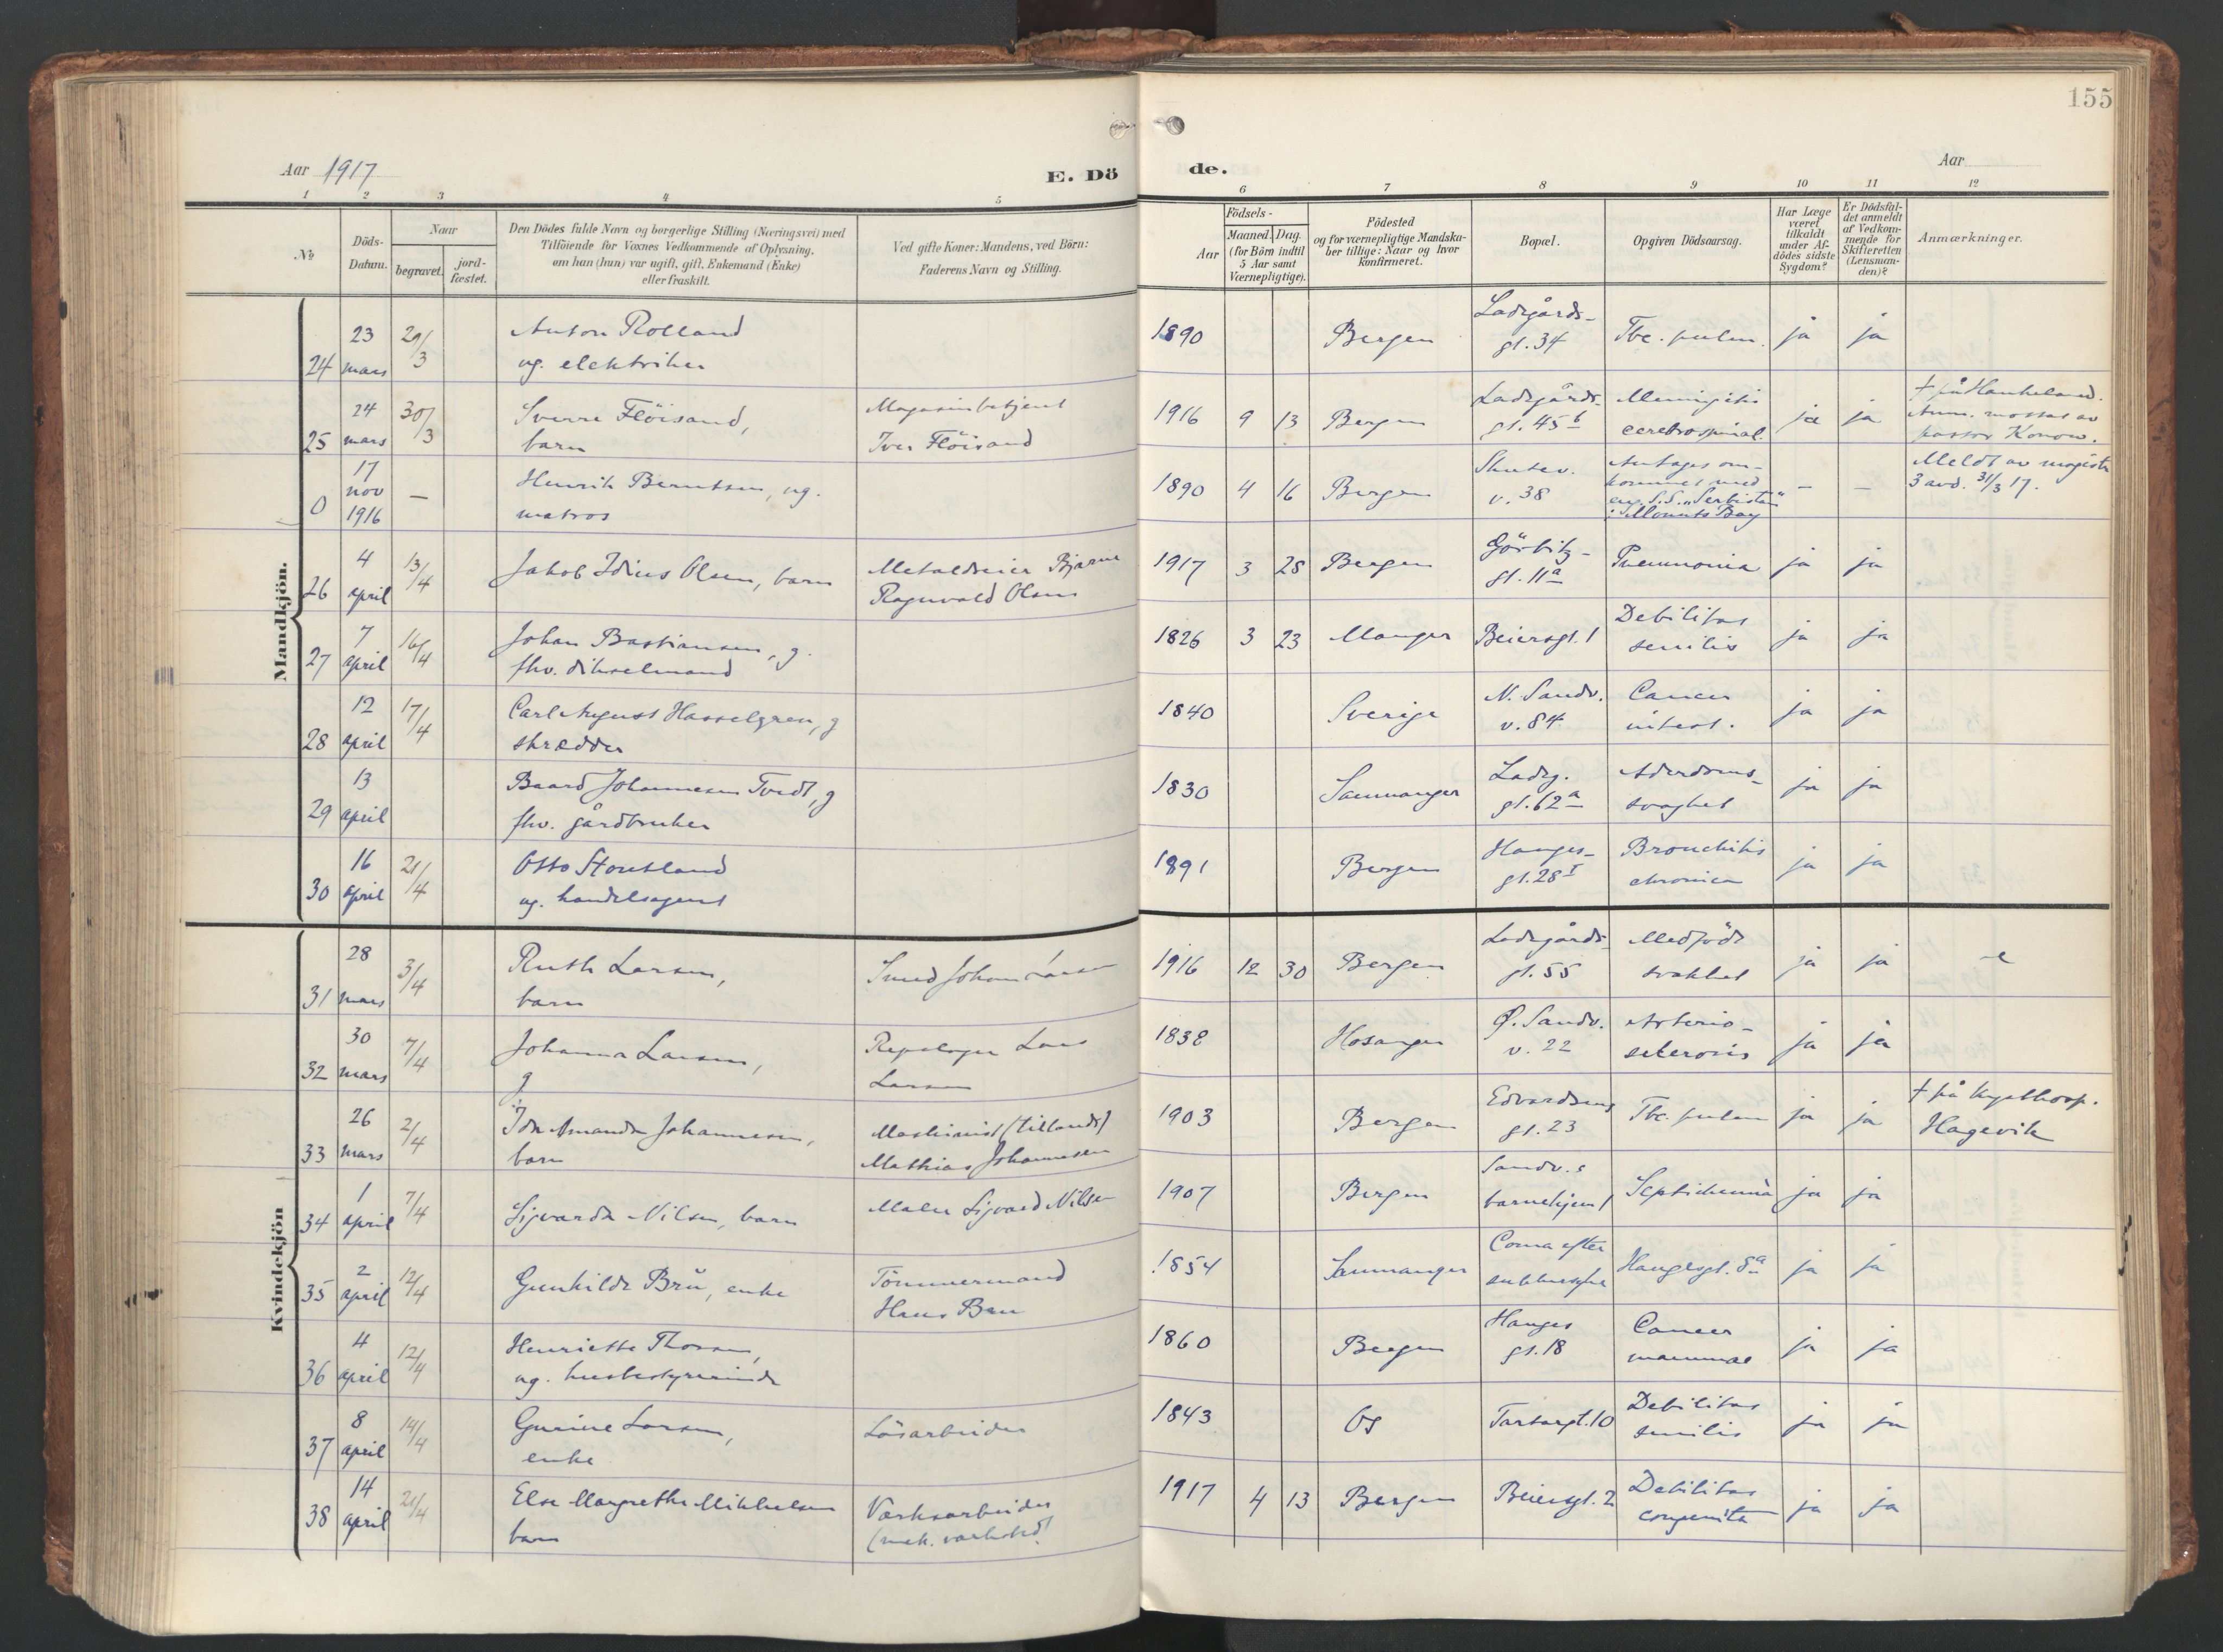 155
Aar 1917
E. Dö
de.
Aar
1 2 3 4 5 6 7 8 9 10 11 12
No
Döds-
Datum.
Naar
begravet.
jord-
fæstet.
Den Dödes fulde Navn og borgerlige Stilling (Næringsvei) med
Tilföiende for Voxnes Vedkommende af Oplysning,
om han (hun) var ugift, gift, Enkemand (Enke)
eller fraskilt.
Ved gifte Koner: Mandens, ved Börn:
Faderens Navn og Stilling.
Födsels-
Aar
Maaned. Dag.
(for Börn indtil
5 Aar samt
Værnepligtige).
Födested
og for værnepligtige Mandska-
ber tillige: Naar og hvor
konfirmeret.
Bopæl.
Opgiven Dödsaarsag.
Har Læge
været
tilkaldt
under Af-
dödes sidste
Sygdom?
Er Dödsfal-
det anmeldt
af Vedkom-
mende for
Skifteretten
(Lensman-
den)?
Anmærkninger.
Mandkjön.
24
23
mars
29/3
Anton Rolland
ug. elektriker
1890
Bergen
Ladegårds-
gt. 34
Tbc. pulm.
ja
ja
25
24
mars
30/3
Sverre Flöisand,
barn
Magasinbetjent
Iver Flöisand
1916 9 13
Bergen
Ladegårds-
gt. 45 b
Meningitis
cerebrospinal.
ja
ja
† på Haukeland.
Anm. mottat av
pastor Konow.
0
17
nov
1916
—
Henrik Berntsen, ug.
matros
1890 4 16
Bergen
Skutev.
v. 38
Antages om-
kommet med
eng. S.S. "Serbistan"
i Mounts Bay
—
—
Meldt av magistr.
3 avd. 31/3 17.
26
4
april
13/4
Jakob Idius Olsen, barn
Metaldreier Bjarne
Ragnvald Olsen
1917 3 28
Bergen
Görbitz-
gt. 11 a
Pneumonia
ja
ja
27
7
april
16/4
Johan Bastiansen, g.
fhv. dikselmand
1826 3 23
Manger
Beiersgt. 1
Debilitas
senilis
ja
ja
28
12
april
17/4
Carl August Hasselgren, g
skrædder
1840
Sverige
N. Sandv.
v. 84
Cancer
intest.
ja
ja
29
13
april
Baard Johannesen Tvedt, g
fhv. gårdbruker
1830
Samnanger
Ladeg.
gt. 62 a
Alderdoms-
svaghet
ja
ja
30
16
april
21/4
Otto Stoutland
ug. handelsagent
1891
Bergen
Hauges-
gt. 28 I
Bronchitis
chronica
ja
ja
Kvindekjön
31
28
mars
3/4
Ruth Larsen,
barn
Smed Johan Larsen
1916 12 30
Bergen
Ladegårds-
gt. 55
Medfödt
svakhet
ja
ja
32
30
mars
7/4
Johanna Larsen,
g
Repslager Lars
Larsen
1838
Hosanger
Ö. Sandv.
v. 22
Arterio-
sclerosis
ja
ja
33
26
mars
2/4
Ida Amanda Johannesen,
barn
Maskinist (tillands)
Mathias Johannesen
1903
Bergen
Edvardsens
gt. 23
Tbc. pulm
ja
ja
† på kysthosp.
Hagevik
34
1
april
7/4
Sigvarda Nilsen, barn
Maler Sigvard Nilsen
1907
Bergen
Sandv. s
barnehjem 1
Septichemia
ja
ja
35
2
april
12/4
Gunhilda Bru, enke
Tömmermand
Hans Bru
1854
Samnanger
Coma efter
sukkersyke
Haugesgt. 8 a
ja
ja
36
4
april
12/4
Henriette Thorsen,
ug. husbestyrerinde
1860
Bergen
Hauges
gt. 18
Cancer
mammae
ja
ja
37
8
april
14/4
Gurine Larsen,
enke
Lösarbeider
1843
Os
Tartargt. 10
Debilitas
senilis
ja
ja
38
14
april
21/4
Else Margrethe Mikkelsen
barn
Værksarbeider
(mek. verksted)
1917 4 13
Bergen
Beiersgt. 2
Debilitas
congenita
ja
ja